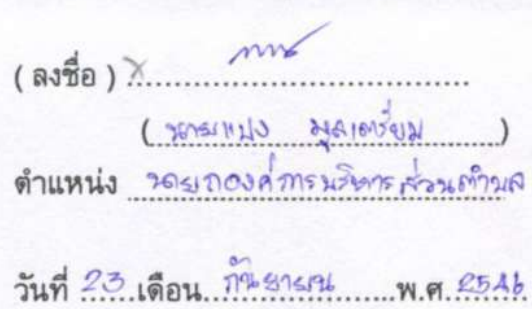 ( ลงชื่อ ) X
( นายแปง มูลเตรียม )
ตำแหน่ง นายกองค์การบริหารส่วนตำบล
วันที่ 23 เดือน กันยายน พ.ศ. 2546